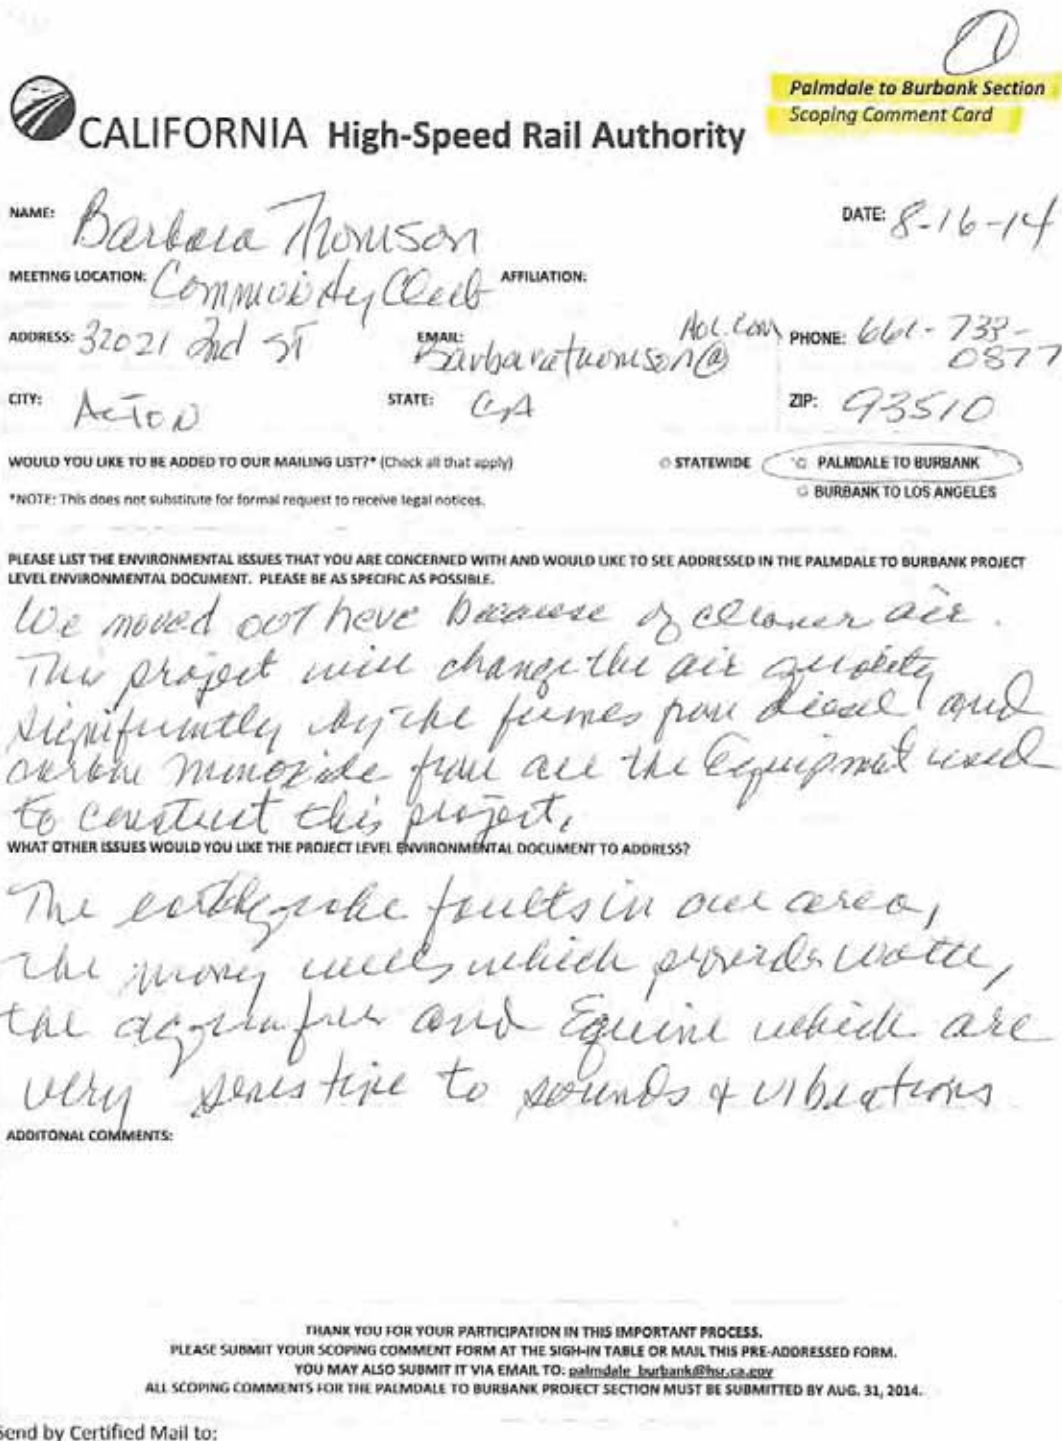 1
Palmdale to Burbank Section
Scoping Comment Card
CALIFORNIA High-Speed Rail Authority
NAME: Barbara Thomson DATE: 8-16-14
MEETING LOCATION: Community Club AFFILIATION:
ADDRESS: 32021 2nd ST EMAIL: Barbarathomson@ Aol.com PHONE: 661-733-0877
CITY: Acton STATE: CA ZIP: 93510
WOULD YOU LIKE TO BE ADDED TO OUR MAILING LIST?* (Check all that apply) STATEWIDE PALMDALE TO BURBANK
*NOTE: This does not substitute for formal request to receive legal notices. BURBANK TO LOS ANGELES
PLEASE LIST THE ENVIRONMENTAL ISSUES THAT YOU ARE CONCERNED WITH AND WOULD LIKE TO SEE ADDRESSED IN THE PALMDALE TO BURBANK PROJECT
LEVEL ENVIRONMENTAL DOCUMENT. PLEASE BE AS SPECIFIC AS POSSIBLE.
We moved out here because of cleaner air.
This project will change the air quality
significantly by the fumes from diesel and
carbon monoxide from all the Equipment used
to construct this project.
WHAT OTHER ISSUES WOULD YOU LIKE THE PROJECT LEVEL ENVIRONMENTAL DOCUMENT TO ADDRESS?
The earthquake faults in our area,
the many wells which provide water,
the and Equine which are
very sensitive to sounds & vibrations
ADDITONAL COMMENTS:
THANK YOU FOR YOUR PARTICIPATION IN THIS IMPORTANT PROCESS.
PLEASE SUBMIT YOUR SCOPING COMMENT FORM AT THE SIGH-IN TABLE OR MAIL THIS PRE-ADDRESSED FORM.
YOU MAY ALSO SUBMIT IT VIA EMAIL TO: palmdale_burbank@hsr.ca.gov
ALL SCOPING COMMENTS FOR THE PALMDALE TO BURBANK PROJECT SECTION MUST BE SUBMITTED BY AUG. 31, 2014.
Send by Certified Mail to: